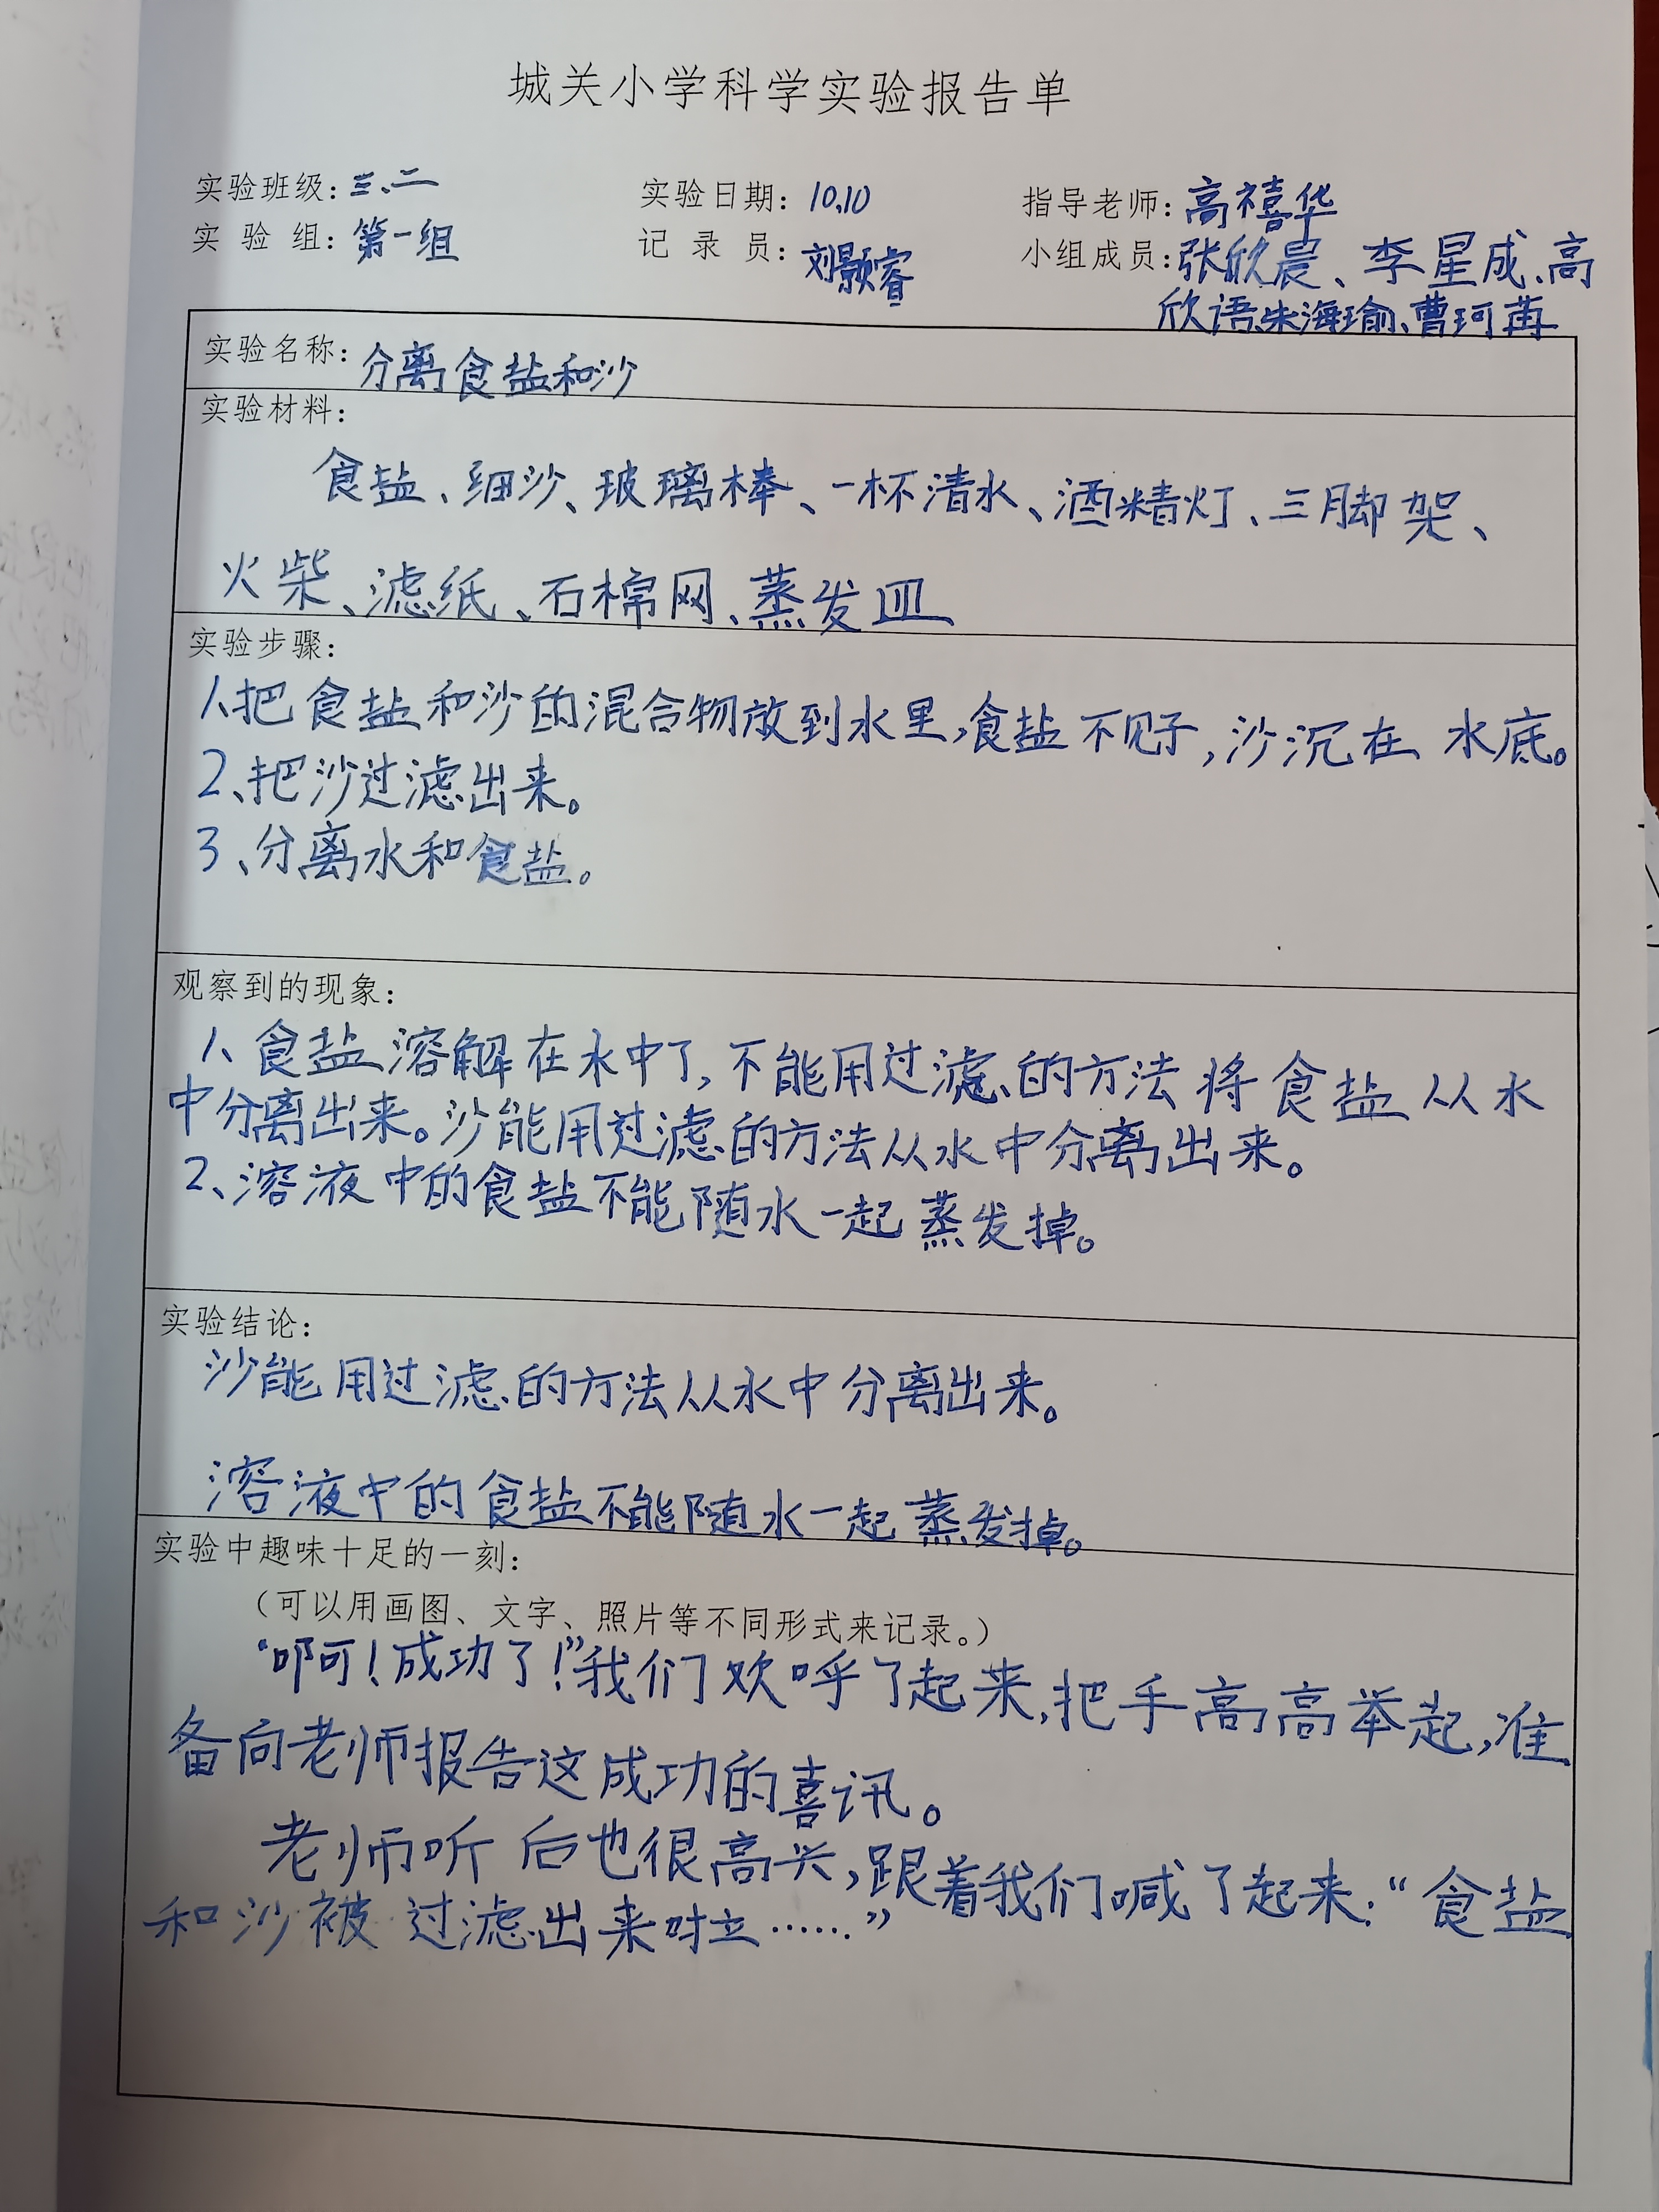 城关小学科学实验报告单
实验班级：三、二 实验日期：10.10 指导老师：高禧华
实验组：第一组 记录员：刘颢睿 小组成员：张欣晨、李星成、高
欣语、朱海瑜、曹珂苒
实验名称：分离食盐和沙
实验材料：
食盐、细沙、玻璃棒、一杯清水、酒精灯、三脚架、
火柴、滤纸、石棉网、蒸发皿
实验步骤：
1、把食盐和沙的混合物放到水里，食盐不见了，沙沉在水底。
2、把沙过滤出来。
3、分离水和食盐。
观察到的现象：
1、食盐溶解在水中了，不能用过滤的方法将食盐从水
中分离出来。沙能用过滤的方法从水中分离出来。
2、溶液中的食盐不能随水一起蒸发掉。
实验结论：
沙能用过滤的方法从水中分离出来。
溶液中的食盐不能随水一起蒸发掉。
实验中趣味十足的一刻：
（可以用画图、文字、照片等不同形式来记录。）
“啊！成功了！”我们欢呼了起来，把手高高举起，准
备向老师报告这成功的喜讯。
老师听后也很高兴，跟着我们喊了起来：“食盐
和沙被过滤出来时立……”